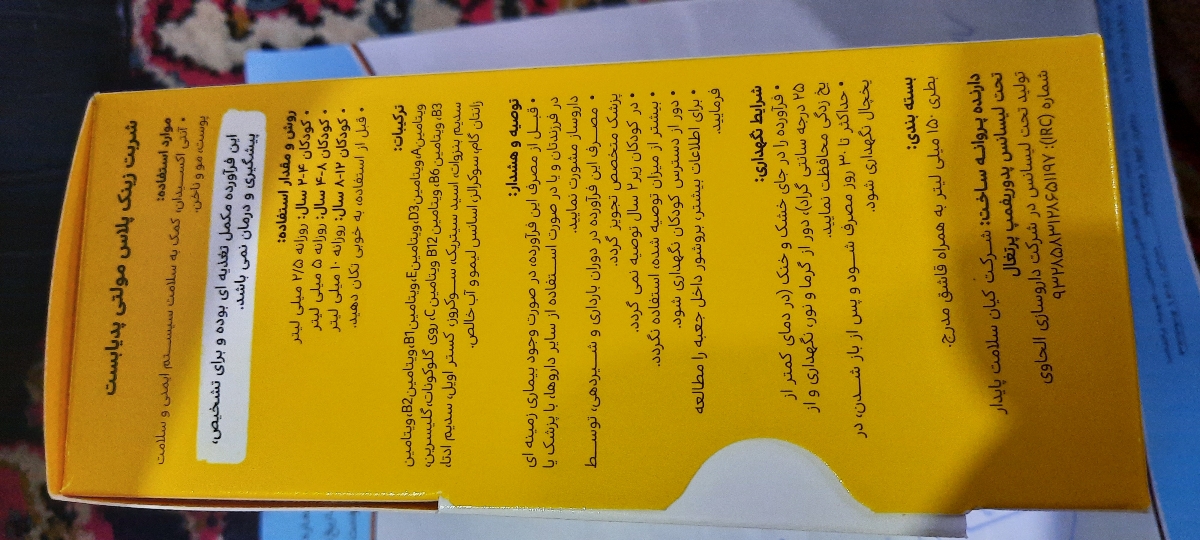 شربت زینک پلاس مولتی پدیابست
موارد استفاده:
• آنتی اکسیدان، کمک به سلامت سیستم ایمنی و سلامت
پوست، مو و ناخن.
این فرآورده مکمل تغذیه ای بوده و برای تشخیص،
پیشگیری و درمان نمی باشد.
روش و مقدار استفاده:
• کودکان ۴-۲ سال: روزانه ۲/۵ میلی لیتر
• کودکان ۸-۴ سال: روزانه ۵ میلی لیتر
• کودکان ۱۲-۸ سال: روزانه ۱۰ میلی لیتر
• قبل از استفاده، به خوبی تکان دهید.
ترکیبات:
ویتامین A، ویتامین D3، ویتامین E، ویتامین B1، ویتامین B2، ویتامین
B3، ویتامین B6، ویتامین B12 ویتامین C، روی گلوکونات، گلیسرین،
سدیم بنزوات، اسید سیتریک، سوکروز، کستر اویل، سدیم ادتا،
زانتان گام، سوکرالز، اسانس لیمو و آب خالص.
توصیه و هشدار:
• قبل از مصرف این فرآورده، در صورت وجود بیماری زمینه ای
در فرزندتان و یا در صورت استفاده از سایر داروها، با پزشک یا
داروساز مشورت نمایید.
• مصرف این فرآورده در دوران بارداری و شیردهی، توسط
پزشک متخصص تجویز گردد.
• در کودکان زیر ۲ سال توصیه نمی گردد.
• بیشتر از میزان توصیه شده، استفاده نگردد.
• دور از دسترس کودکان نگهداری شود.
• برای اطلاعات بیشتر، بروشور داخل جعبه را مطالعه
فرمایید.
شرایط نگهداری:
• فرآورده را در جای خشک و خنک (در دمای کمتر از
۲۵ درجه سانتی گراد)، دور از گرما و نور، نگهداری و از
یخ زدگی محافظت نمایید.
• حداکثر تا ۳۰ روز مصرف شود و پس از باز شدن، در
یخچال نگهداری شود.
بسته بندی:
بطری ۱۵۰ میلی لیتر به همراه قاشق مدرج.
دارنده پروانه ساخت: شرکت کیان سلامت پایدار
تحت لیسانس پدوریفمپ پرتغال
تولید تحت لیسانس در شرکت داروسازی الحاوی
شماره (IRC): ۹۳۲۸۵۸۳۱۲۸۶۵۱۱۹۷